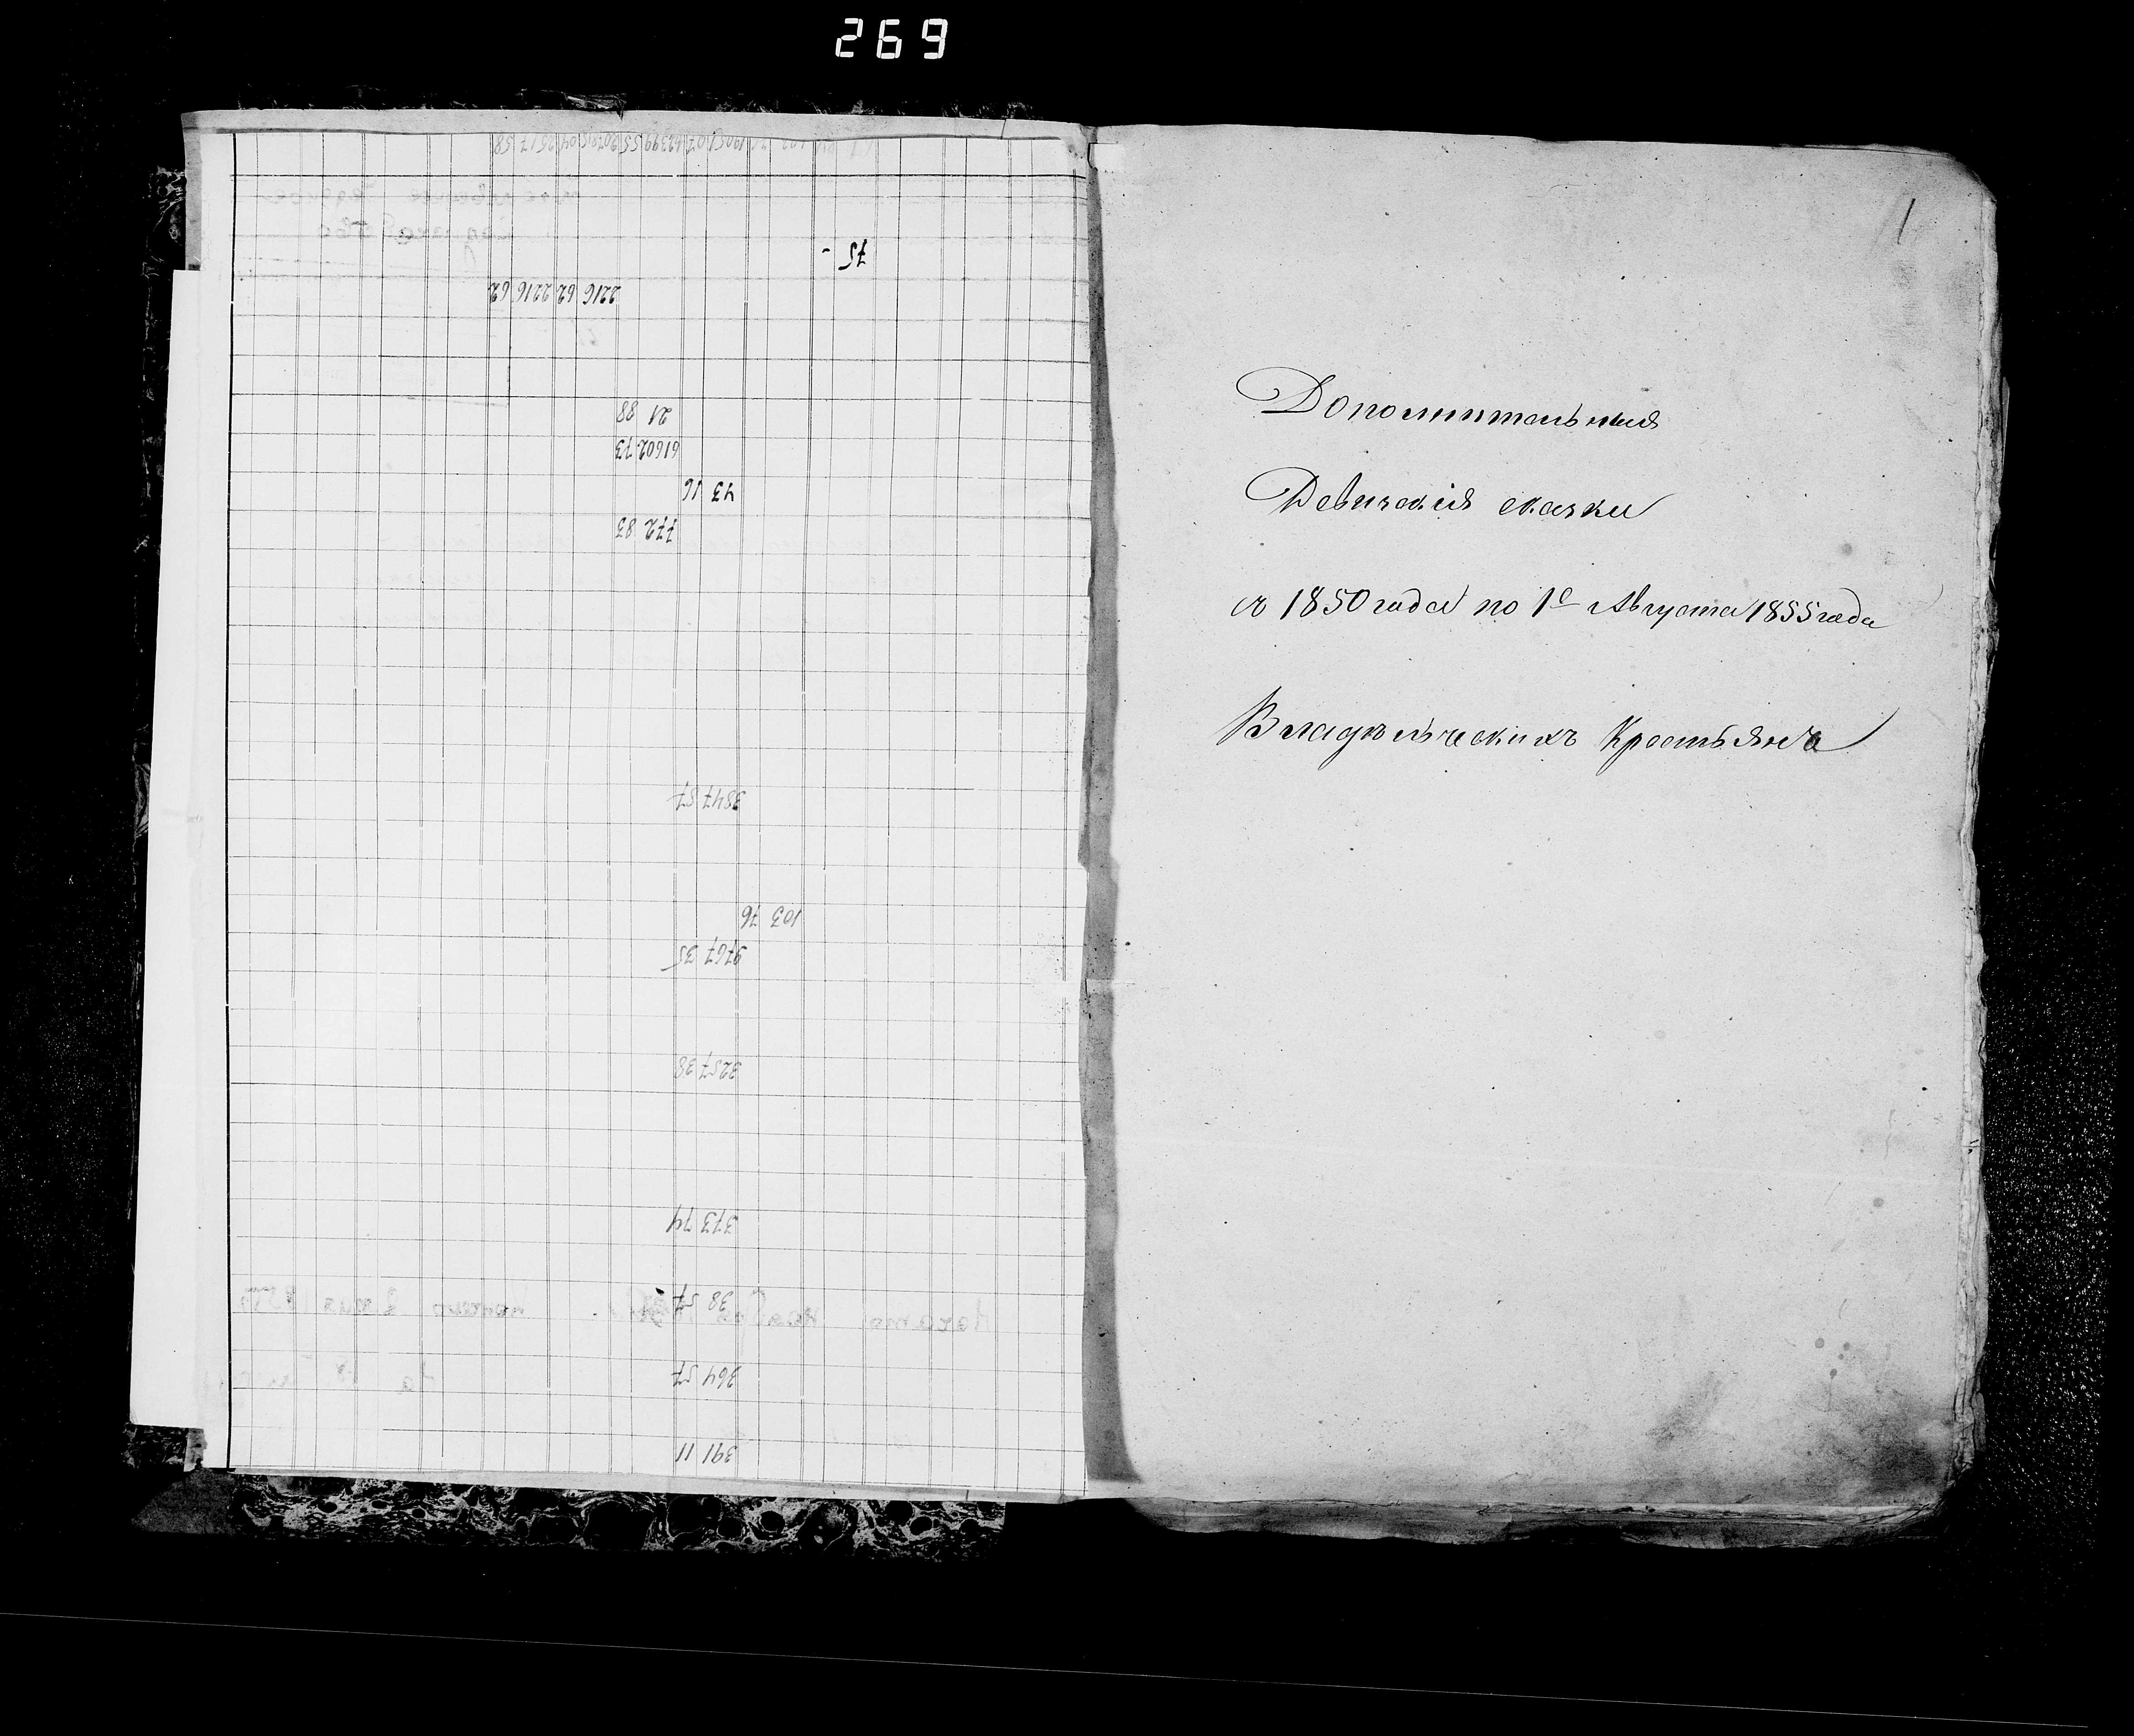 269
75 -
2216 62 2216 62
21 88
61602 73
43 16
772 83
3847 87
103 76
9767 35
3257 38
373 74
38 57
364 57
391 11
1
Дополнительныя
Девическія сказки
съ 1850 года по 1е Августа 1855 года
Владѣльческихъ Крестьянъ